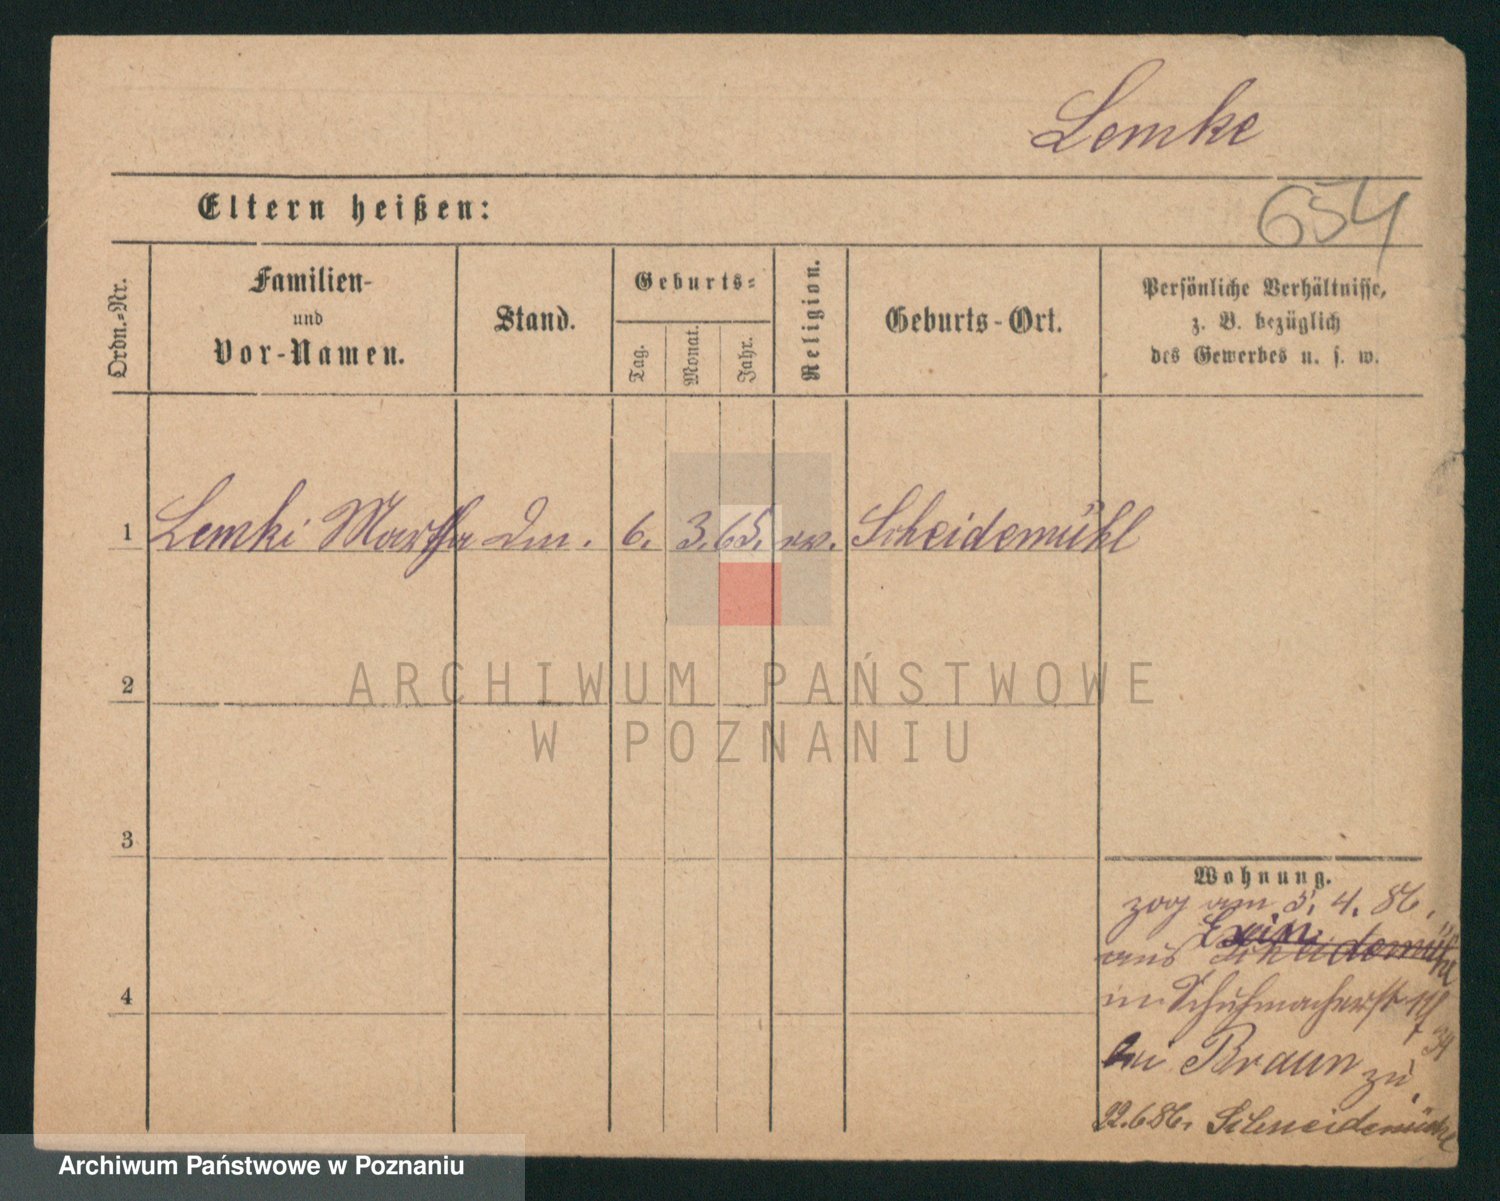 Lemke
654
Eltern heißen:
Ordn.-Nr.
Familien-
und
Vor-Namen.
Stand.
Geburts-
Tag.
Monat.
Jahr.
Religion.
Geburts-Ort.
Persönliche Verhältnisse,
z. B. bezüglich
des Gewerbes u. s. w.
1 Lemki Martha 6. 3. 65. Scheidemühl
2
ARCHIWUM PAŃSTWOWE
W POZNANIU
3
4
Wohnung.
zog am 5. 4. 86.
Exin
aus Scheidemühl
in Schuhmacherst
bei Braun zu.
22.6 86. Schneidemühl
Archiwum Państwowe w Poznaniu